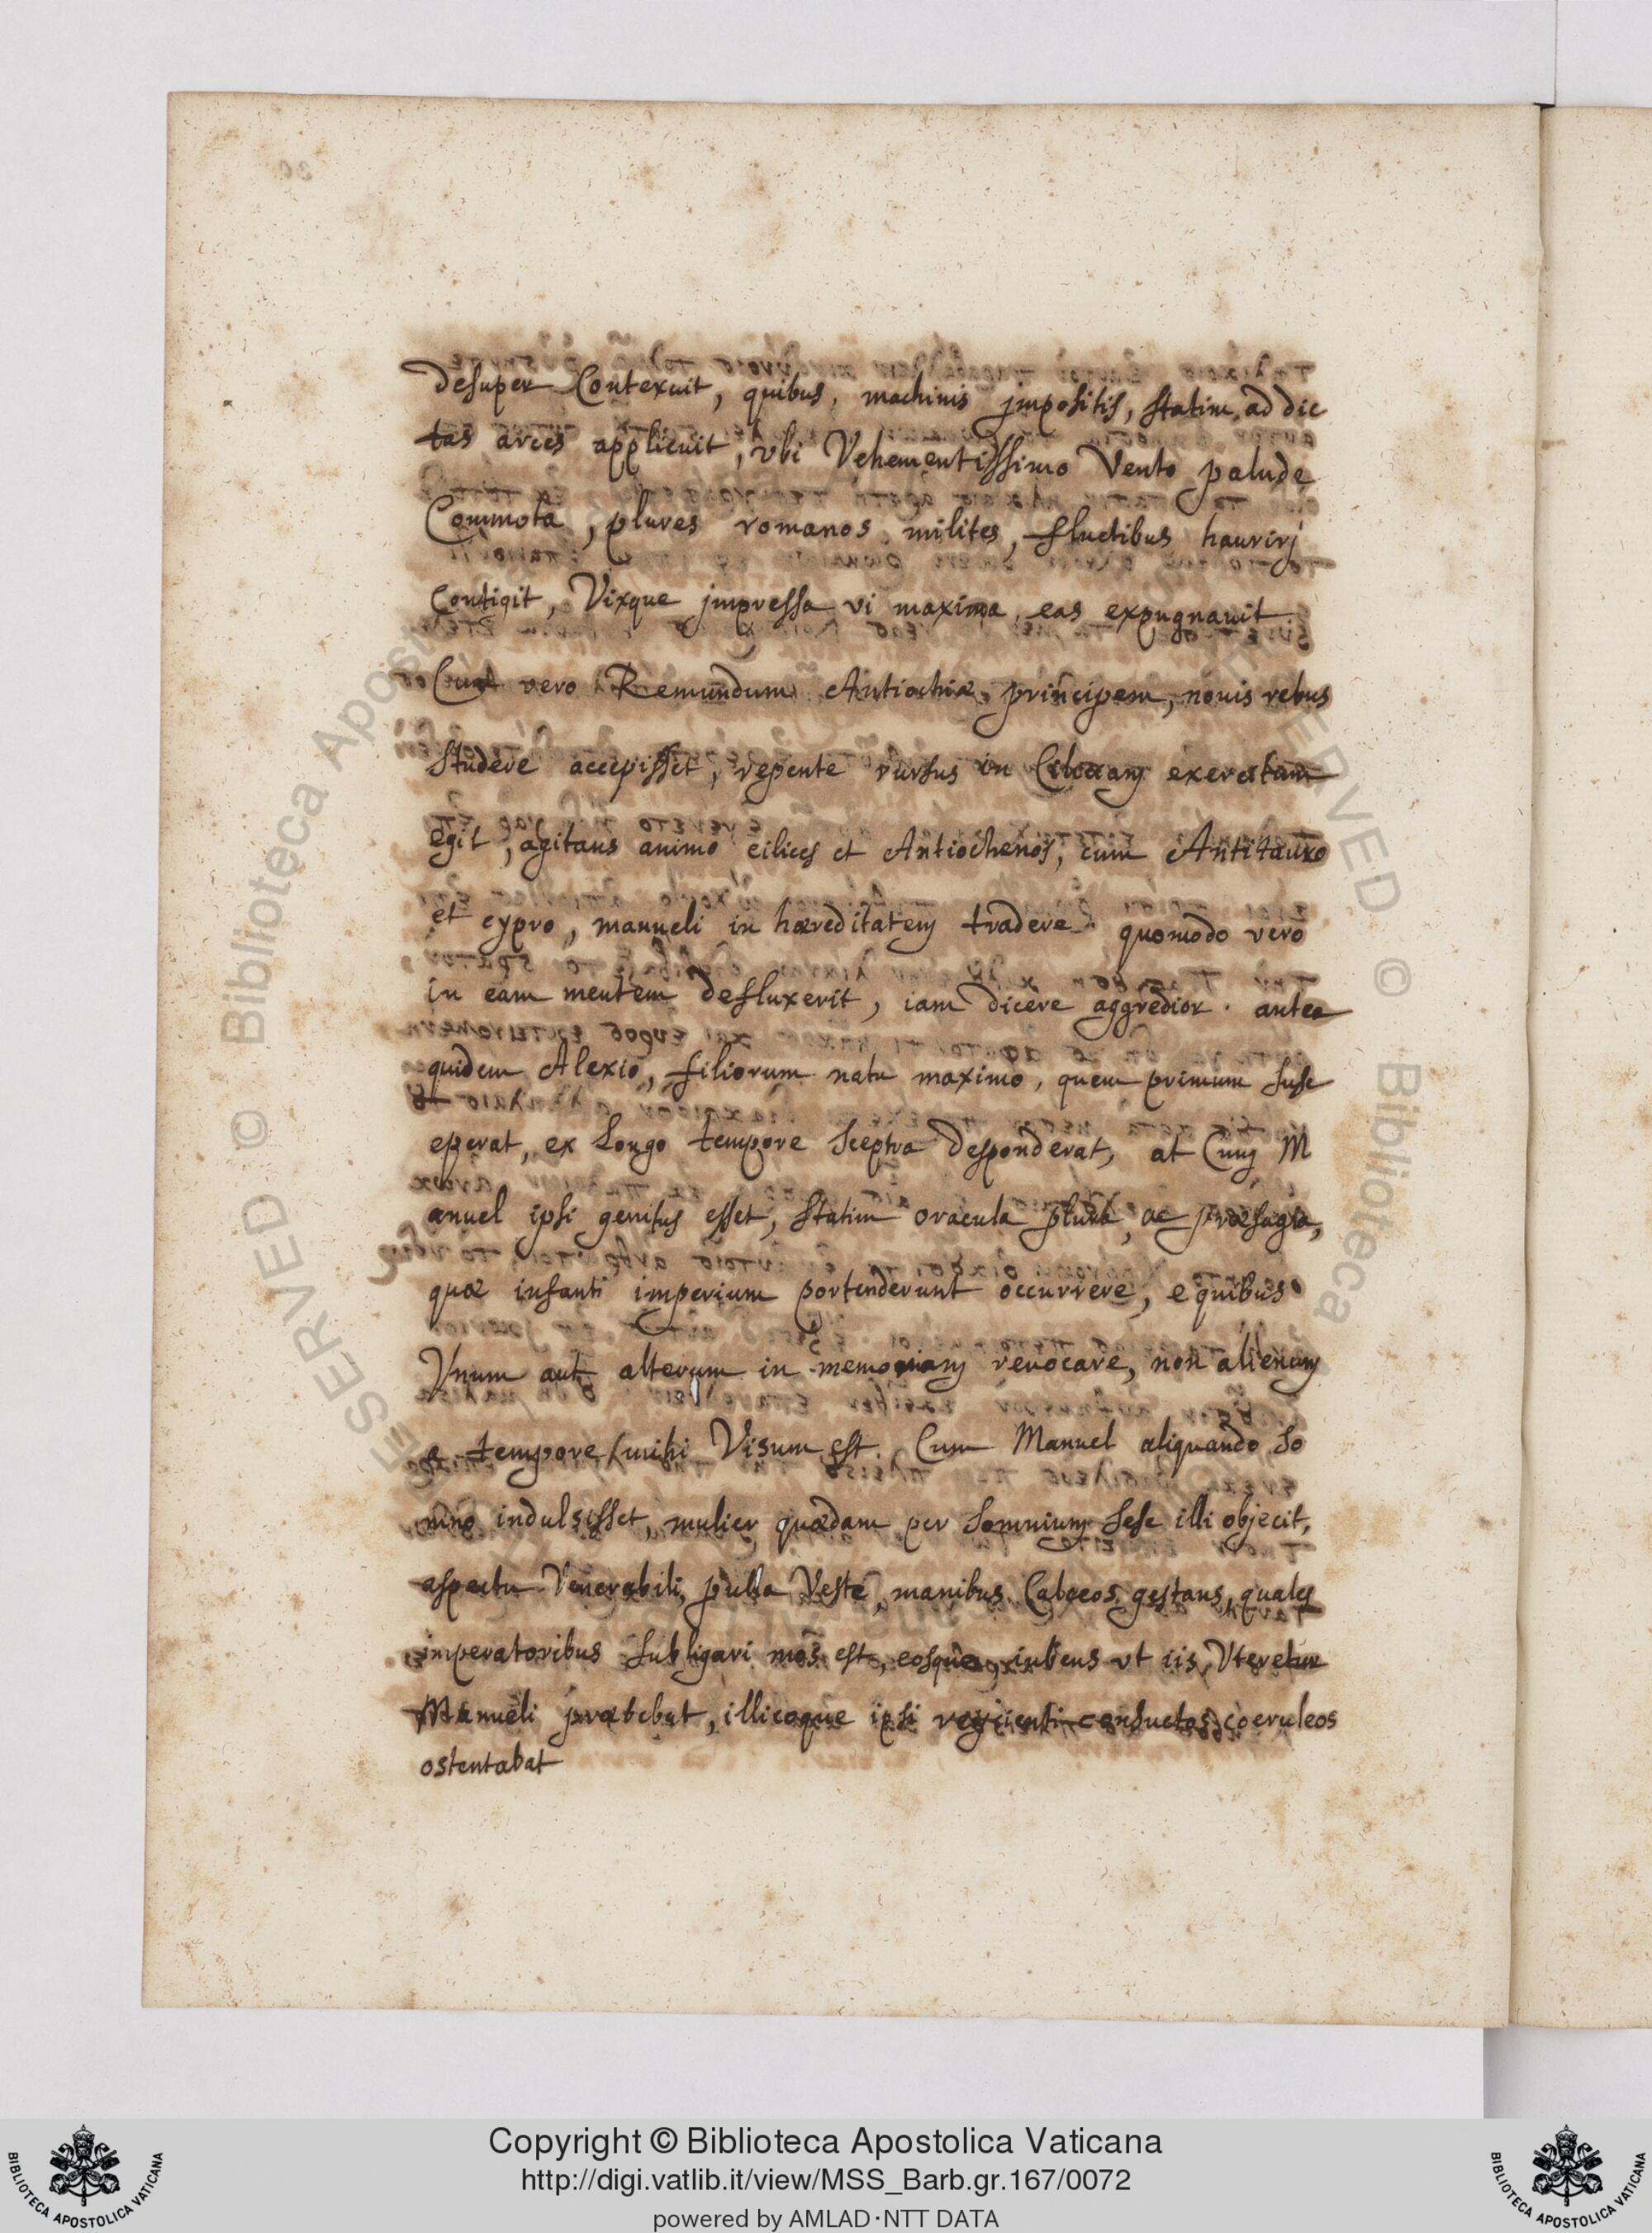 desuper Contexuit, quibus, machinis jmpositis, statim, ad dic
tas arces applicuit, vbi Vehementissimo Vento palude
Commota, plures romanos milites, fluctibus haurirj
Contigit, Vixque jmpressa vi maxima, eas expugnauit.
Cum vero Remundum Antiochiæ principem, nouis rebus
studere accepisset, repente rursus in Ciliciam exercitum
egit, agitans animo cilices et Antiochenos, cum Antitauro
et cypro, manueli in hæreditatem tradere. quomodo vero
in eam mentem defluxerit, iam dicere aggredior. antea
quidem Alexio, filiorum natu maximo, quem primum susc
eperat, ex Longo tempore sceptra desponderat, at Cum M
anuel ipsi genitus esset, statim oracula plura, ac præsagia,
quæ infanti imperium portenderunt occurrere, e quibus
Vnum aut alterum in memoriam reuocare, non alienum
a tempore mihi Visum est. Cum Manuel aliquando so
mno indulsisset, mulier quædam per somnium sese illi objecit,
aspectu Venerabili, pulla Veste, manibus Calceos gestans, quales
imperatoribus subligari mos est, eosque, iubens vt iis Vteretur
Manueli præbebat, illicoque ipsi reijcienti consuetos coeruleos
ostentabat
Copyright © Biblioteca Apostolica Vaticana
http://digi.vatlib.it/view/MSS_Barb.gr.167/0072
powered by AMLAD·NTT DATA
BIBLIOTECA APOSTOLICA VATICANA
BIBLIOTECA APOSTOLICA VATICANA